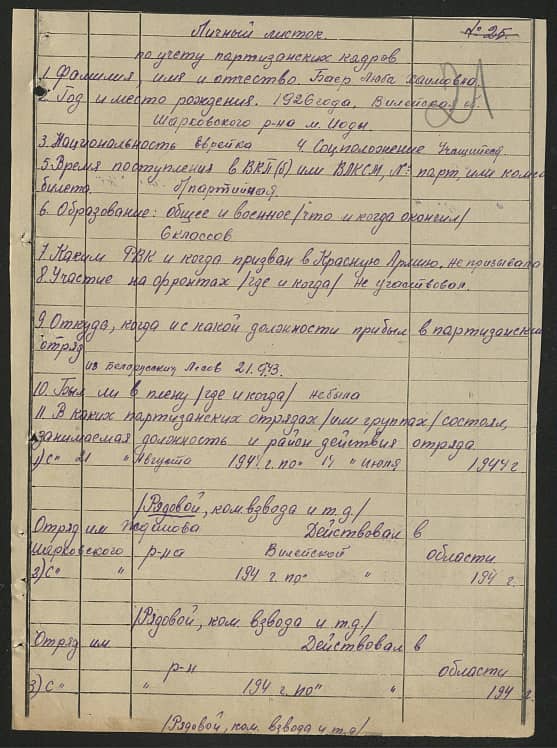 Личный листок.
№ 25.
по учету партизанских кадров
21
1. Фамилия, имя и отчество. Баер Люба Хаимовна.
2. Год и место рождения. 1926 года, Вилейская об.
Шарковского р-на м. Иоды.
3. Национальность еврейка 4 Соцположение Учащаяся
5. Время поступления в ВКП(б) или ВЛКСМ, № парт. или комс
билета. б/партийная.
6. Образование: общее и военное /что и когда окончил/
6 классов
7. Каким РВК и когда призван в Красную Армию. не призывала
8. Участие на фронтах /где и когда/ не участвовал.
9. Откуда, когда и с какой должности прибыл в партизански
отряд
из Белорусских Лесов 21.9.43.
10. Был ли в плену /где и когда/ не была
11. В каких партизанских отрядах /или группах/ состоял,
занимаемая должность и район действия отряда
1) с" 21 " Августа 194 г. по" 14 " июля 1944 г
/Рядовой, ком. взвода и т.д./
Отряд им Жданова Действовал в
Шарковского р-на Вилейской области.
2) с" " 194 г. по" " 194 г.
/Рядовой, ком. взвода и т.д./
Отряд им. Действовал в
р-н области
3) с" " 194 г. по" " 194 г.
/Рядовой, ком. взвода и т.д/